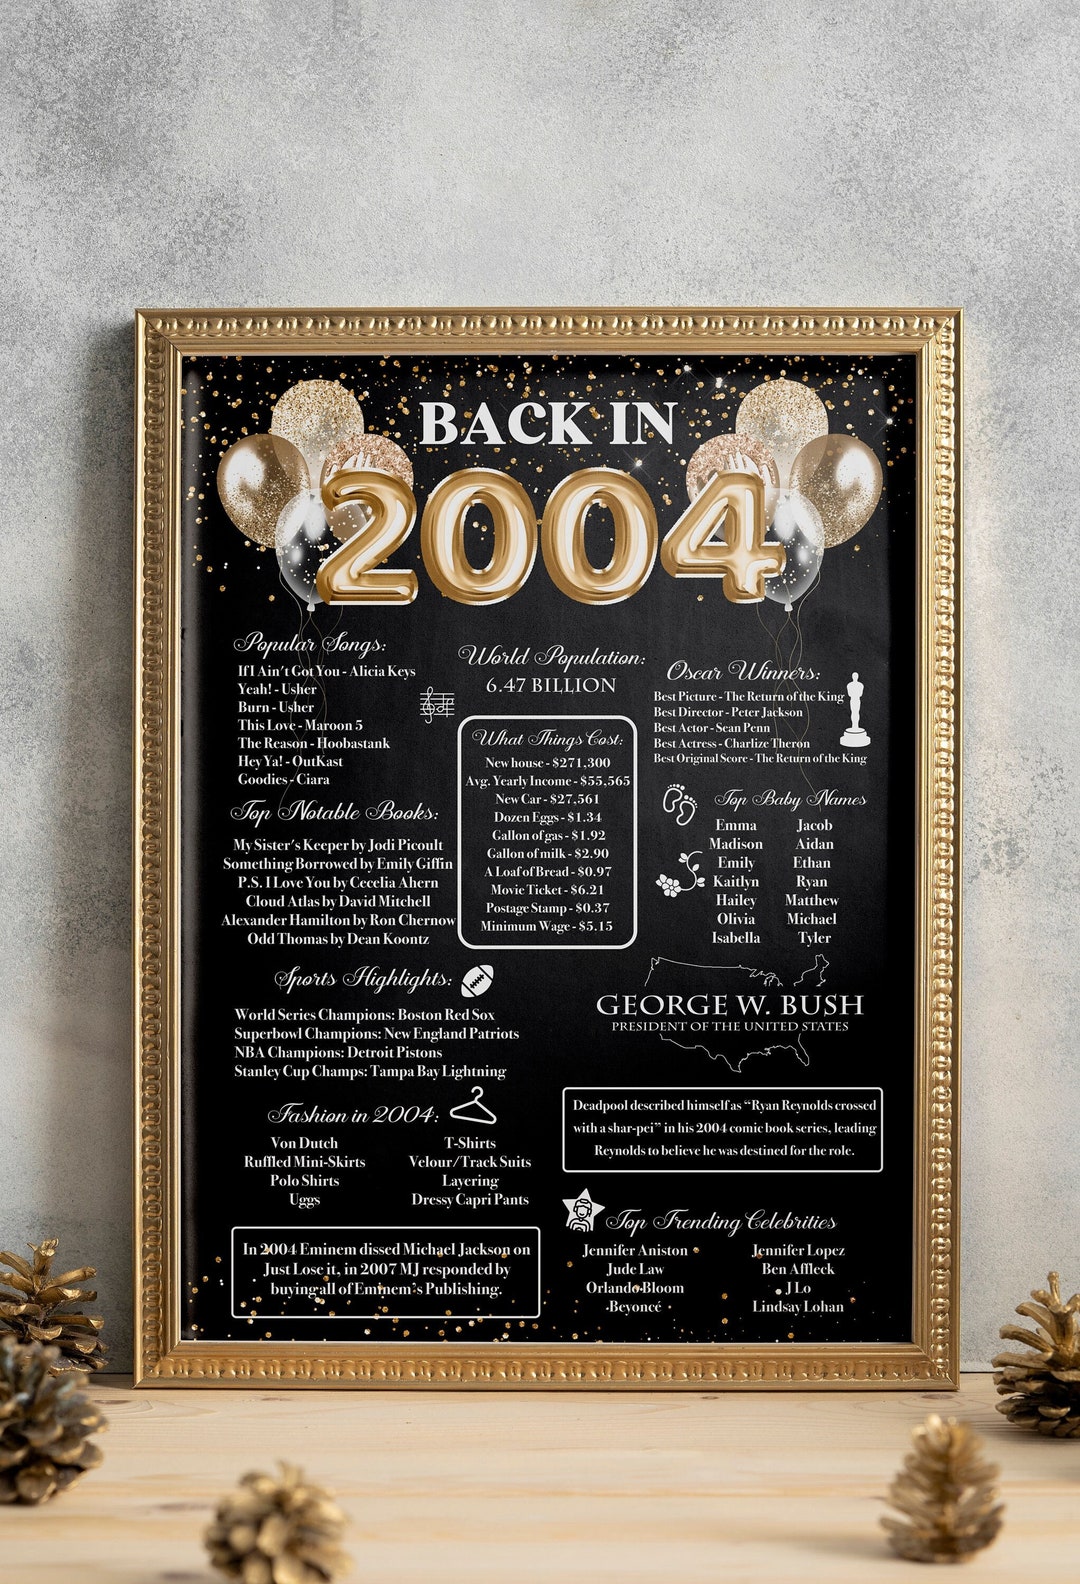 BACK IN
2004
Popular Songs:
If I Ain't Got You - Alicia Keys
Yeah! - Usher
Burn - Usher
This Love - Maroon 5
The Reason - Hoobastank
Hey Ya! - OutKast
Goodies - Ciara
Top Notable Books:
My Sister's Keeper by Jodi Picoult
Something Borrowed by Emily Giffin
P.S. I Love You by Cecelia Ahern
Cloud Atlas by David Mitchell
Alexander Hamilton by Ron Chernow
Odd Thomas by Dean Koontz
World Population:
6.47 BILLION
What Things Cost:
New house - $271,300
Avg. Yearly Income - $55,565
New Car - $27,561
Dozen Eggs - $1.34
Gallon of gas - $1.92
Gallon of milk - $2.90
A Loaf of Bread - $0.97
Movie Ticket - $6.21
Postage Stamp - $0.37
Minimum Wage - $5.15
Oscar Winners:
Best Picture - The Return of the King
Best Director - Peter Jackson
Best Actor - Sean Penn
Best Actress - Charlize Theron
Best Original Score - The Return of the King
Top Baby Names
Emma Jacob
Madison Aidan
Emily Ethan
Kaitlyn Ryan
Hailey Matthew
Olivia Michael
Isabella Tyler
Sports Highlights:
World Series Champions: Boston Red Sox
Superbowl Champions: New England Patriots
NBA Champions: Detroit Pistons
Stanley Cup Champs: Tampa Bay Lightning
GEORGE W. BUSH
PRESIDENT OF THE UNITED STATES
Fashion in 2004:
Von Dutch T-Shirts
Ruffled Mini-Skirts Velour/Track Suits
Polo Shirts Layering
Uggs Dressy Capri Pants
Deadpool described himself as “Ryan Reynolds crossed
with a shar-pei” in his 2004 comic book series, leading
Reynolds to believe he was destined for the role.
In 2004 Eminem dissed Michael Jackson on
Just Lose it, in 2007 MJ responded by
buying all of Eminem's Publishing.
Top Trending Celebrities
Jennifer Aniston Jennifer Lopez
Jude Law Ben Affleck
Orlando Bloom J Lo
Beyoncé Lindsay Lohan